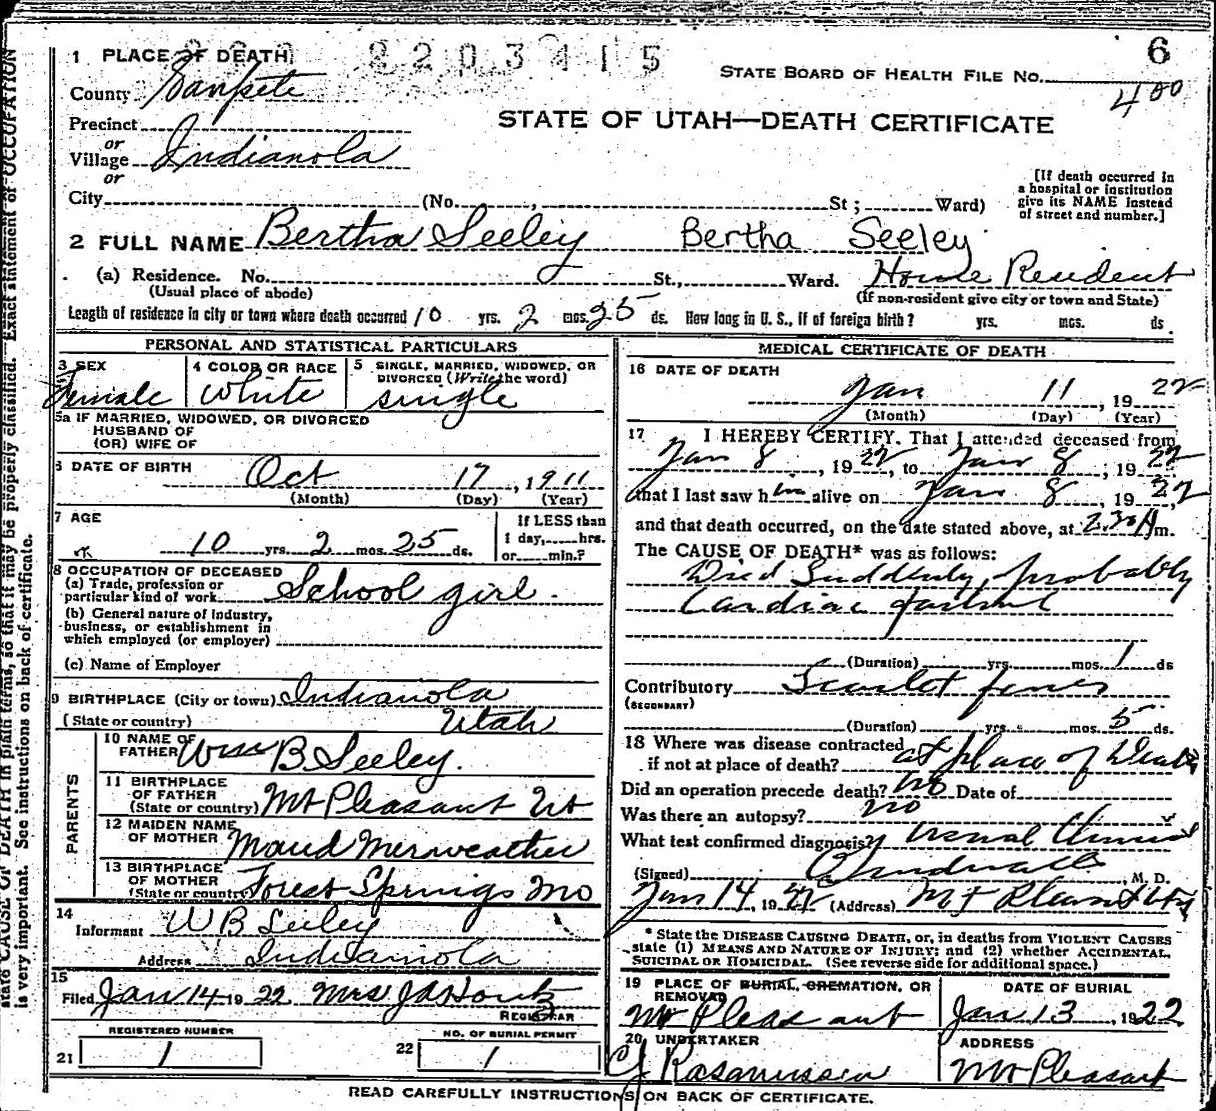 1 PLACE OF DEATH 8203415 6
STATE BOARD OF HEALTH FILE No. 400
County Sanpete
STATE OF UTAH—DEATH CERTIFICATE
Precinct
or
Village Indianola
or
City (No. , St ; Ward)
[If death occurred in
a hospital or institution
give its NAME instead
of street and number.]
2 FULL NAME Bertha Seeley Bertha Seeley
(a) Residence. No. St., Ward. Home Resident
(Usual place of abode) (If non-resident give city or town and State)
Length of residence in city or town where death occurred 10 yrs. 2 mos. 25 ds. How long in U. S., if of foreign birth? yrs. mos. ds.
PERSONAL AND STATISTICAL PARTICULARS
3 SEX 4 COLOR OR RACE 5 SINGLE, MARRIED, WIDOWED, OR
DIVORCED (Write the word)
Female White single
5a IF MARRIED, WIDOWED, OR DIVORCED
HUSBAND OF
(OR) WIFE OF
6 DATE OF BIRTH Oct 17, 1911
(Month) (Day) (Year)
7 AGE 10 yrs. 2 mos. 25 ds.
If LESS than
1 day, hrs.
or min.?
8 OCCUPATION OF DECEASED
(a) Trade, profession or
particular kind of work School girl
(b) General nature of industry,
business, or establishment in
which employed (or employer)
(c) Name of Employer
9 BIRTHPLACE (City or town) Indianola
(State or country) Utah
PARENTS
10 NAME OF
FATHER Wm B Seeley.
11 BIRTHPLACE
OF FATHER
(State or country) Mt Pleasant Ut
12 MAIDEN NAME
OF MOTHER Maud Merweather
13 BIRTHPLACE
OF MOTHER
(State or country) Forest Springs Mo
14
Informant W B Seeley
Address Indianola
15
Filed Jan 14 1922 Mrs J A Houtz
REGISTRAR
REGISTERED NUMBER NO. OF BURIAL PERMIT
21 1 22 1
MEDICAL CERTIFICATE OF DEATH
16 DATE OF DEATH
Jan 11, 1922
(Month) (Day) (Year)
17 I HEREBY CERTIFY. That I attended deceased from
Jan 8, 1922, to Jan 8, 1922
that I last saw him alive on Jan 8, 1922
and that death occurred, on the date stated above, at 2.30 A m.
The CAUSE OF DEATH* was as follows:
Died Suddenly, probably
Cardiac failure
(Duration) yrs. mos. 1 ds
Contributory Scarlet fever
(SECONDARY)
(Duration) yrs. mos. 5 ds.
18 Where was disease contracted
if not at place of death? at place of Death
Did an operation precede death? No Date of
Was there an autopsy? no
What test confirmed diagnosis? Usual Clinical
(Signed) M. D.
Jan 14, 1922 (Address) Mt Pleasant Utah
* State the DISEASE CAUSING DEATH, or, in deaths from VIOLENT CAUSES
state (1) MEANS AND NATURE OF INJURY; and (2) whether ACCIDENTAL,
SUICIDAL OR HOMICIDAL. (See reverse side for additional space.)
19 PLACE OF BURIAL, CREMATION, OR
REMOVAL DATE OF BURIAL
Mt Pleasant Jan 13, 1922
20 UNDERTAKER ADDRESS
C J Rasmussen Mt Pleasant
READ CAREFULLY INSTRUCTIONS ON BACK OF CERTIFICATE.
state CAUSE OF DEATH in plain terms, so that it may be properly classified. Exact statement of OCCUPATION
is very important. See instructions on back of certificate.